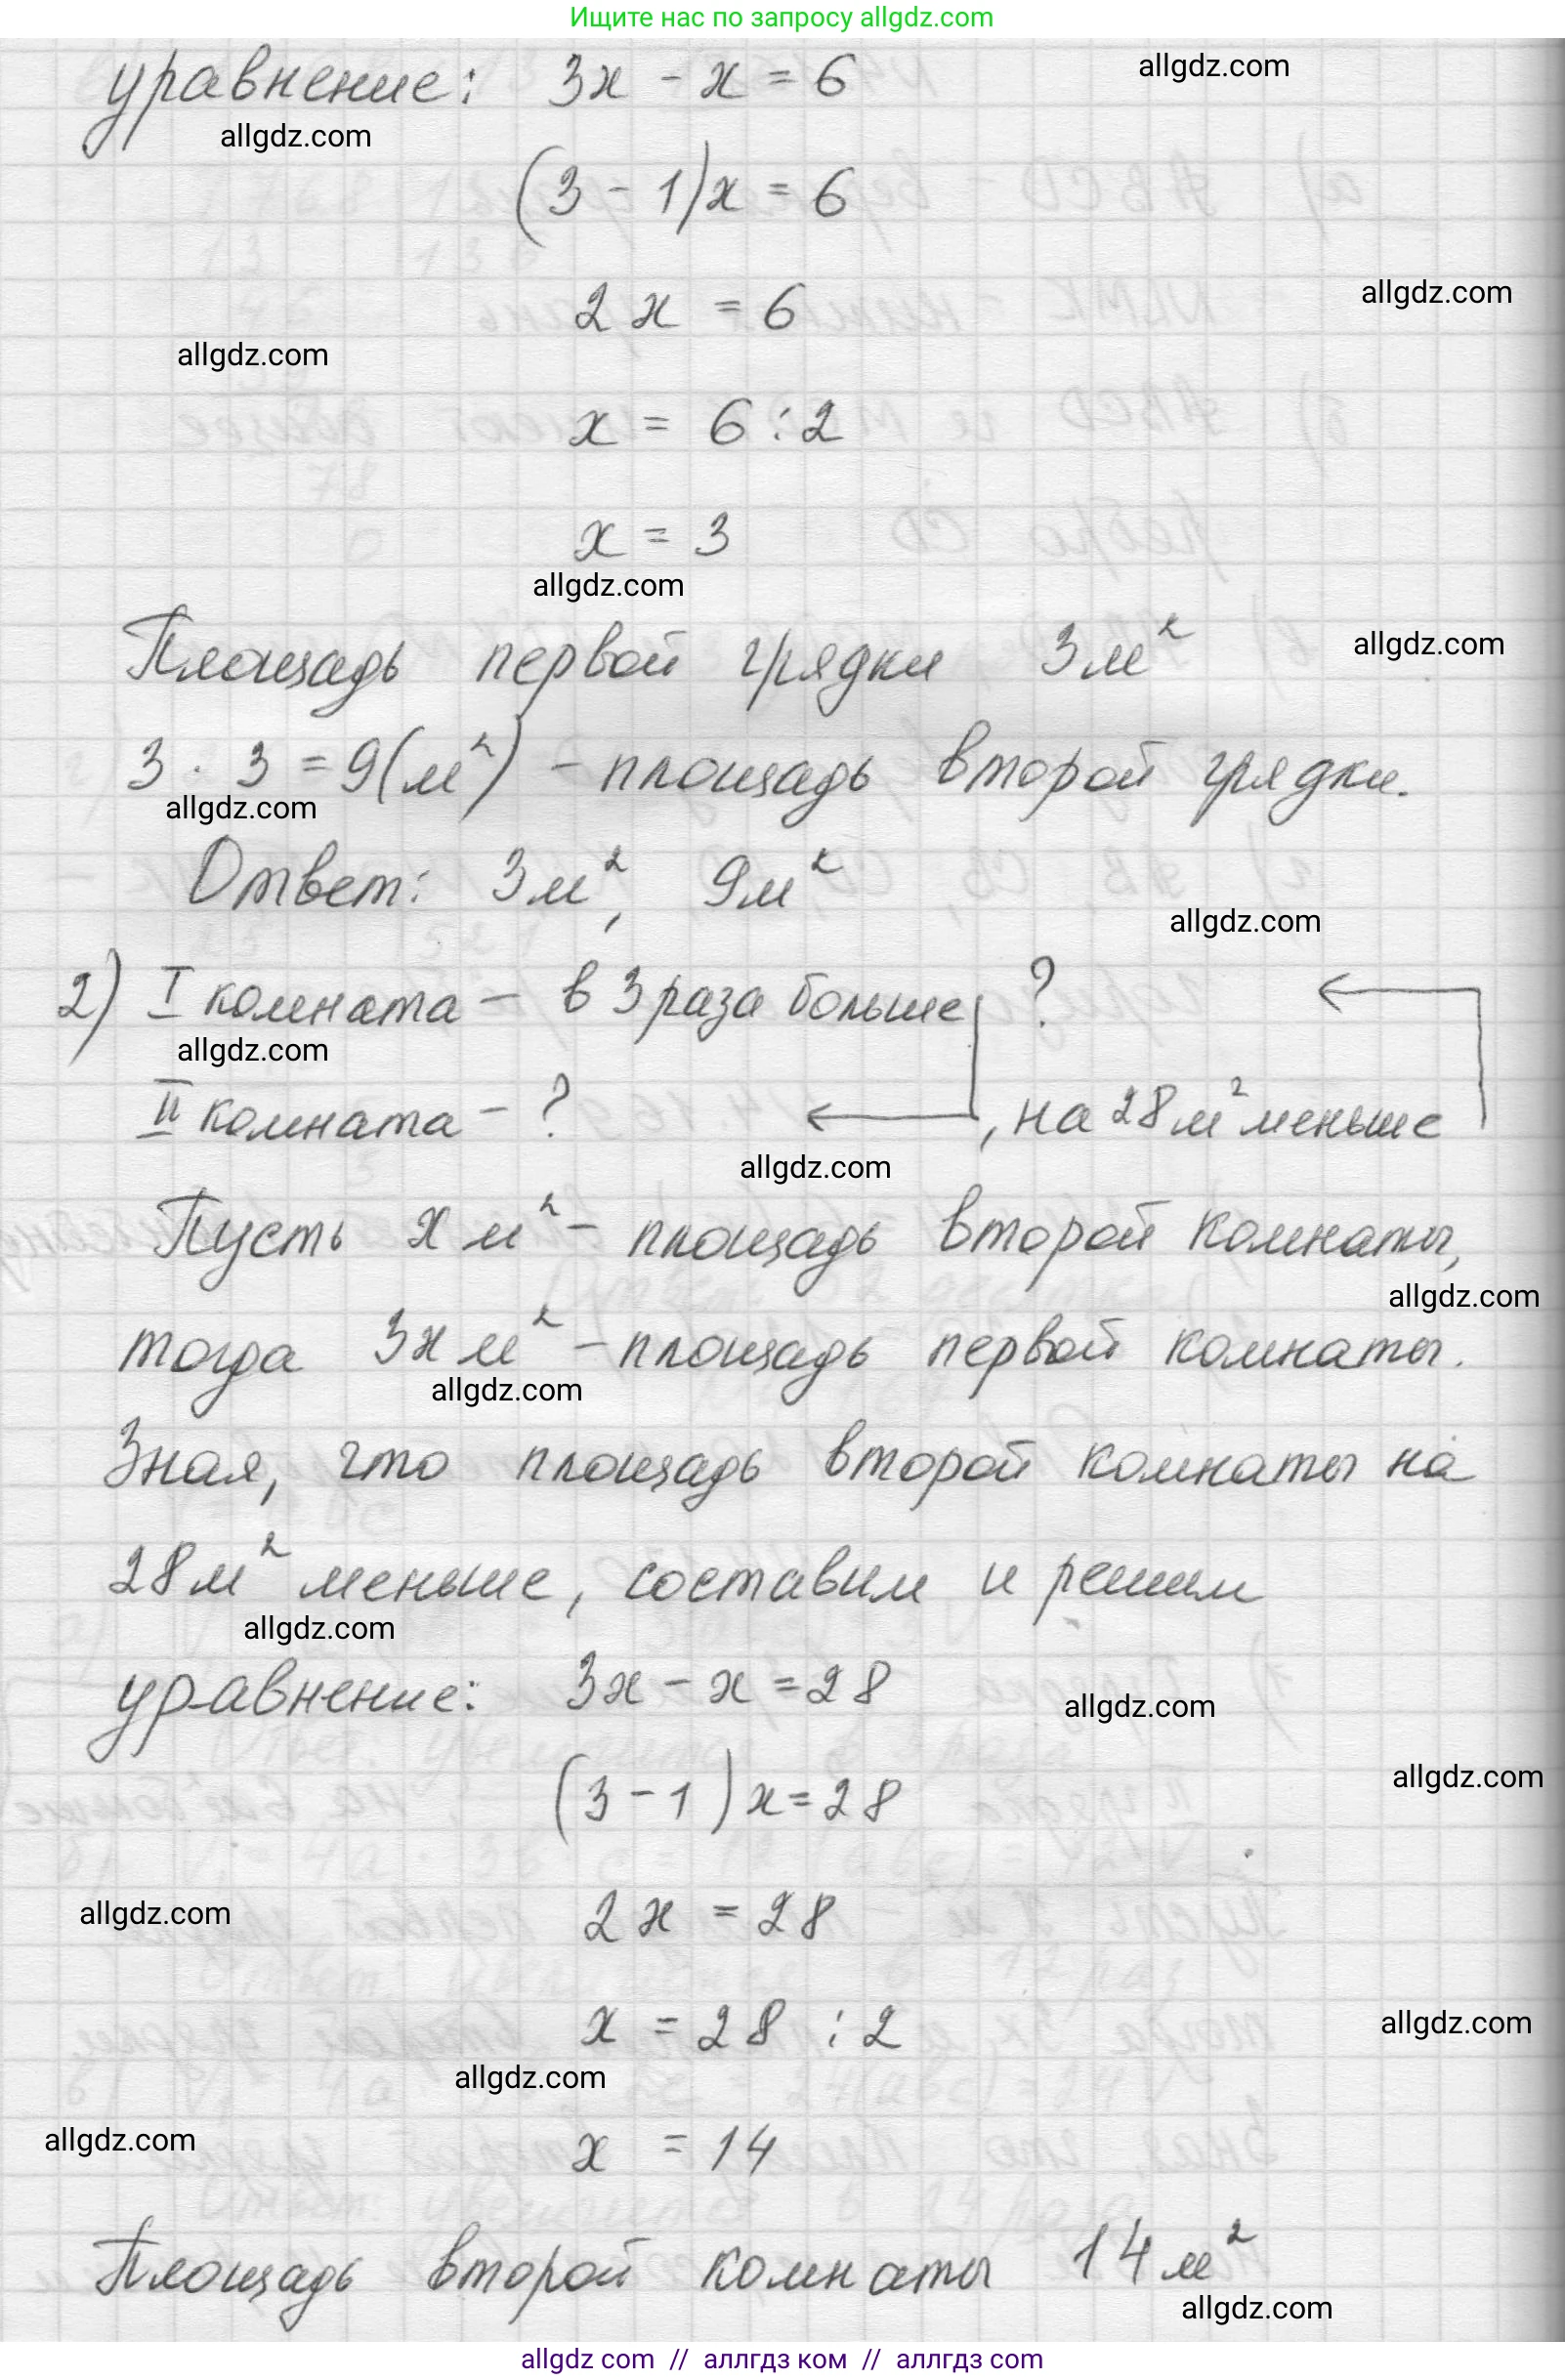 Ищите нас по запросу allgdz.com
уравнение: 3x - x = 6
allgdz.com
allgdz.com
(3 - 1)x = 6
2x = 6
allgdz.com
allgdz.com
x = 6 : 2
x = 3
allgdz.com
Площадь первой грядки 3м²
allgdz.com
3 · 3 = 9(м²) - площадь второй грядки.
allgdz.com
Ответ: 3м², 9м²
allgdz.com
2) I комната - в 3 раза больше ?
allgdz.com
II комната - ? , на 28м² меньше
allgdz.com
Пусть x м² - площадь второй комнаты,
allgdz.com
тогда 3x м² - площадь первой комнаты.
allgdz.com
Зная, что площадь второй комнаты на
28м² меньше, составим и решим
allgdz.com
уравнение: 3x - x = 28
allgdz.com
allgdz.com
(3 - 1)x = 28
allgdz.com
2x = 28
x = 28 : 2
allgdz.com
allgdz.com
allgdz.com
x = 14
Площадь второй комнаты 14м²
allgdz.com
allgdz com // аллгдз ком // аллгдз com